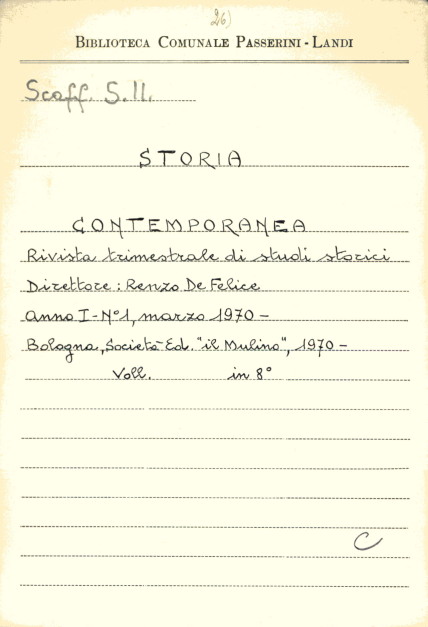 26)
BIBLIOTECA COMUNALE PASSERINI-LANDI
Scaff. S.11.
STORIA
CONTEMPORANEA
Rivista trimestrale di studi storici
Direttore: Renzo De Felice
Anno I-N°1, marzo 1970-
Bologna, Società Ed. "il Mulino", 1970-
Voll. in 8°
C